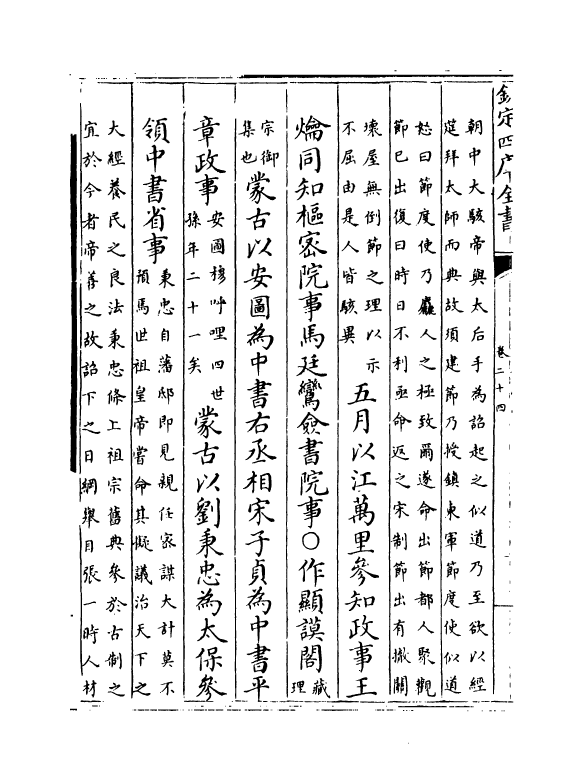 欽定四庫全書
卷二十四
朝中大駭帝與太后手為詔起之似道乃至欲以經
筵拜太師而典故須建節乃授鎮東軍節度使似道
怒曰節度使乃麤人之極致爾遂命出節都人聚觀
節已出復曰時日不利亟命返之宋制節出有撤關
壞屋無倒節之理以示
不屈由是人皆駭異
五月以江萬里參知政事王
爚同知樞密院事馬廷鸞僉書院事○作顯謨閣
藏
理
宗御
集也
蒙古以安圖為中書右丞相宋子貞為中書平
章政事
安圖穆呼哩四世
孫年二十一矣
蒙古以劉秉忠為太保參
領中書省事
秉忠自藩邸即見親任宻謀大計莫不
預焉世祖皇帝嘗命其擬議治天下之
大經養民之良法秉忠條上祖宗舊典參於古制之
宜於今者帝善之故詔下之日綱舉目張一時人材